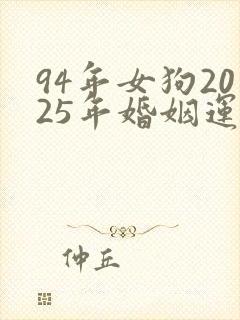 94年女狗20
25年婚姻運
仲丘